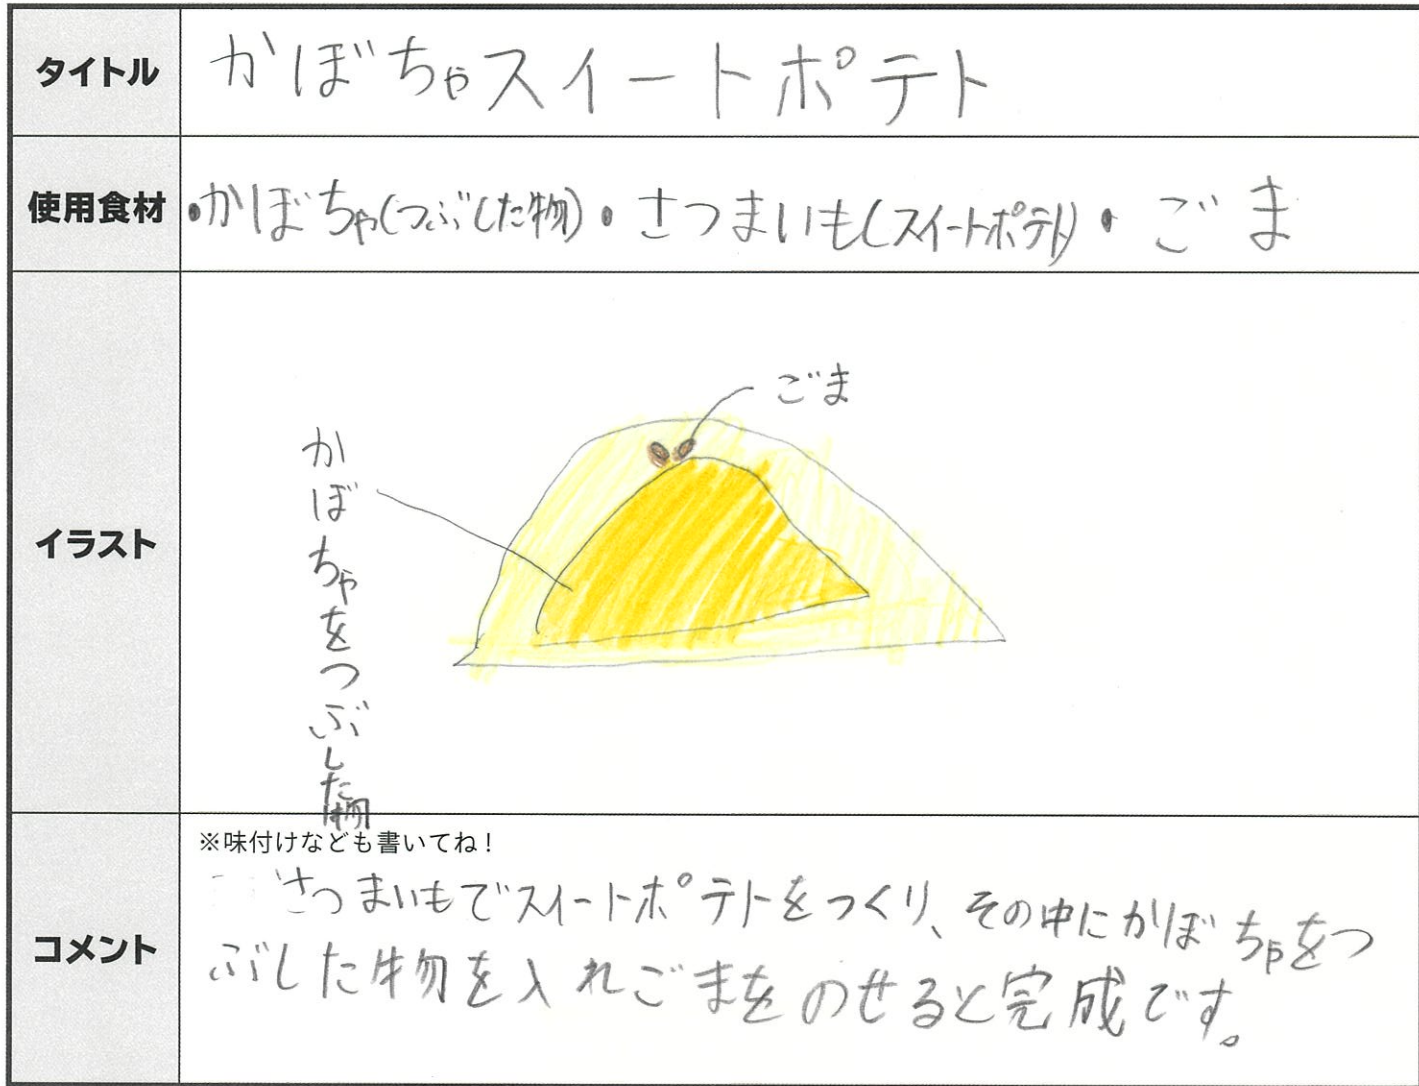 タイトル
かぼちゃスイートポテト
使用食材
・かぼちゃ(つぶした物)・さつまいも(スイートポテト)・ごま
イラスト
ごま
かぼちゃをつぶした物
コメント
※味付けなども書いてね！
さつまいもでスイートポテトをつくり、その中にかぼちゃをつ
ぶした物を入れごまをのせると完成です。